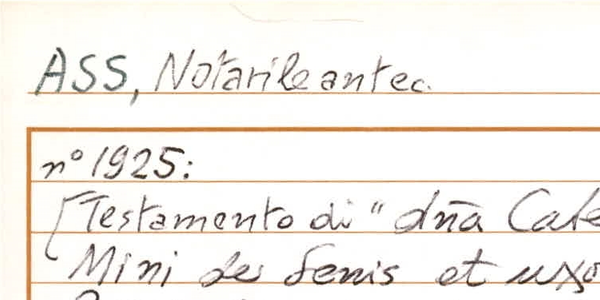 ASS, Notarile antec.
n° 1925:
[Testamento di "dña Cate
Mini de Senis et uxo